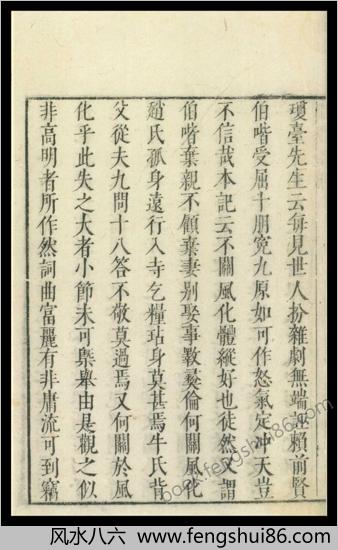 瓊臺先生云每見世人扮雜劇無端誣賴前賢
伯喈受屈十朋寃九原如可作怒氣定冲天豈
不信哉本記云不關風化體縱好也徒然又謂
伯喈棄親不顧棄妻別娶事斁彛倫何關風化
趙氏孤身遠行入寺乞糧玷身莫甚焉牛氏背
父從夫九問十八答不敬莫過焉又何關於風
化乎此失之大者小節未可槩舉由是觀之似
非高明者所作然詞曲富麗有非庸流可到竊
book.fengshui86.com
风水八六 www.fengshui86.com